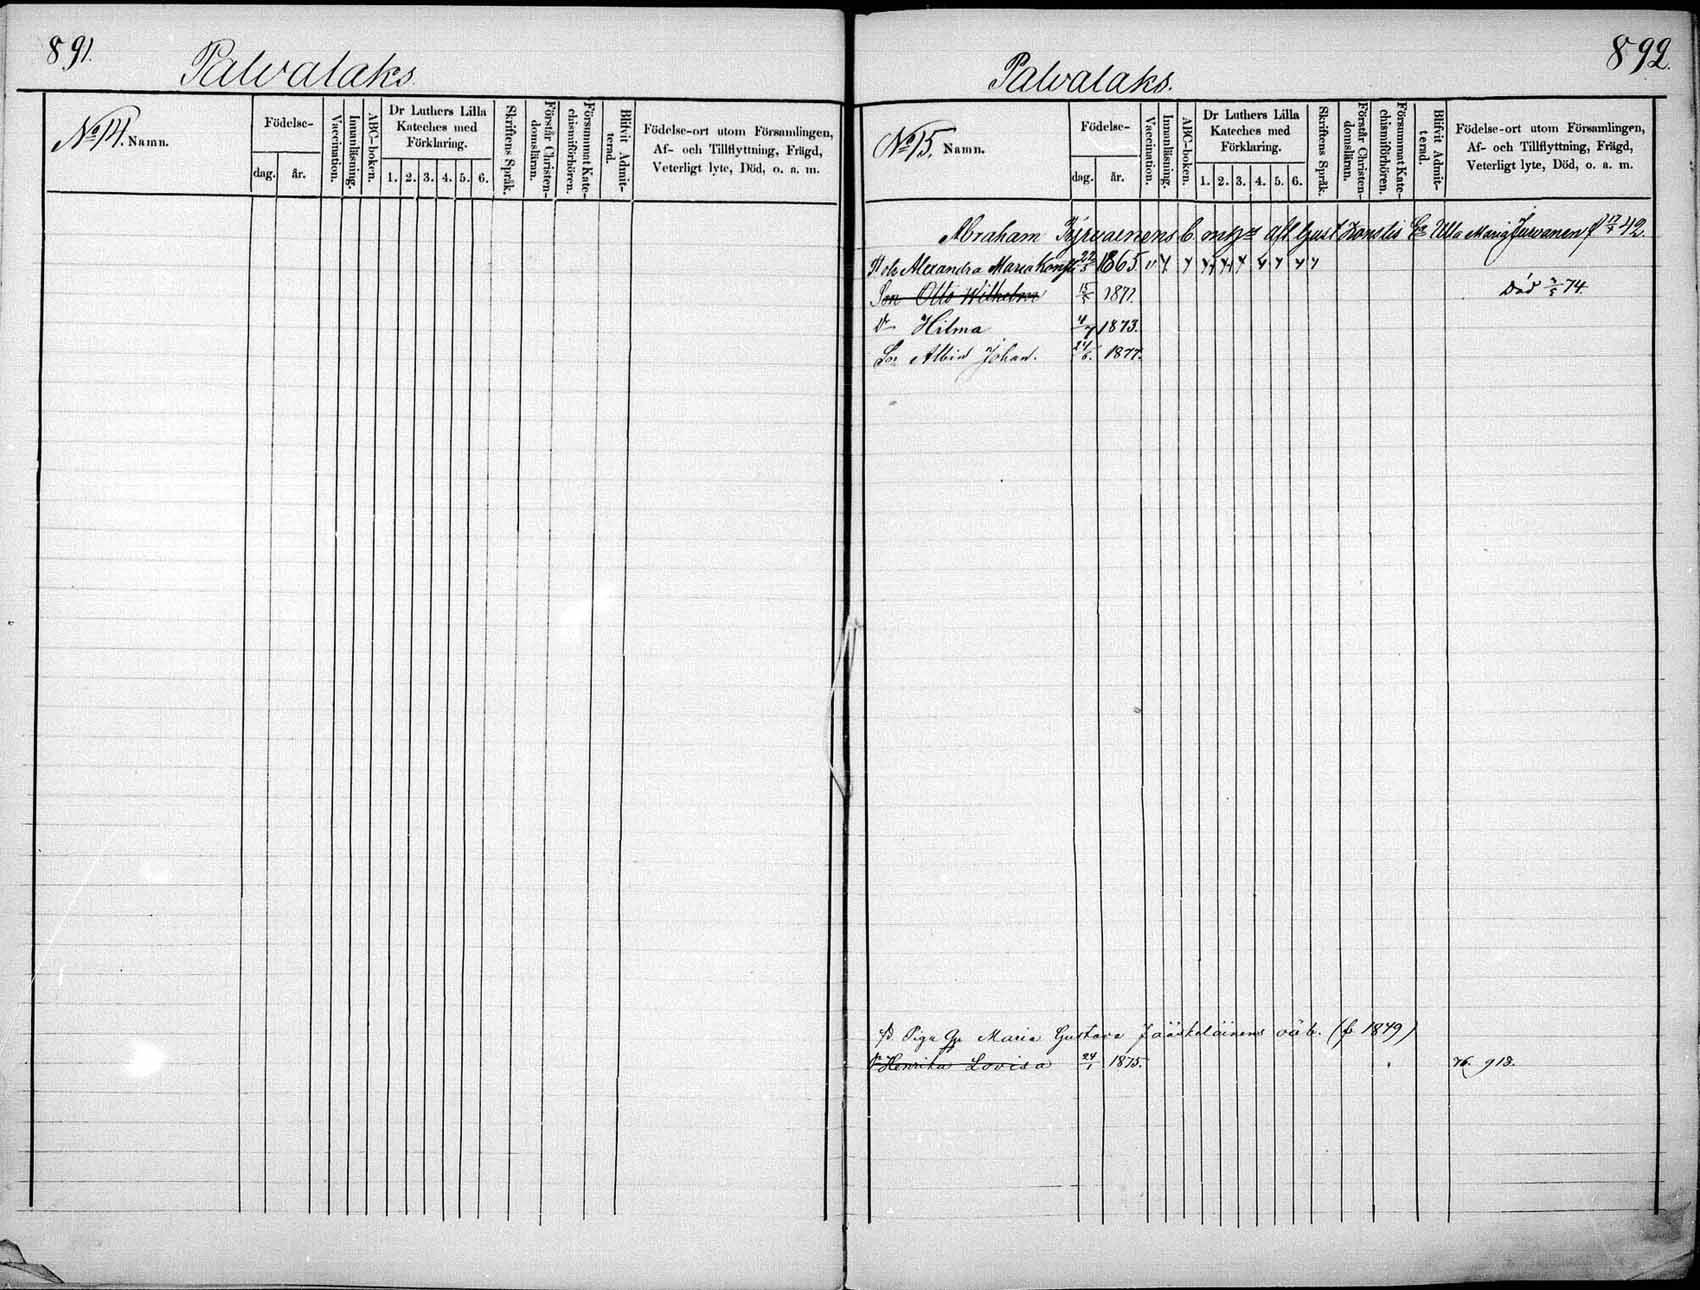 891.
Palvalaks.
No 14. Namn.
Födelse-
dag.
år.
Vaccination.
Innanläsning.
ABC-boken.
Dr Luthers Lilla
Kateches med
Förklaring.
1. 2. 3. 4. 5. 6.
Skriftens Språk.
Förstår Christen-
domsläran.
Försummat Kate-
chismiförhören.
Blifvit Admit-
terad.
Födelse-ort utom Församlingen,
Af- och Tillflyttning, Frägd,
Veterligt lyte, Död, o. a. m.
892.
Palvalaks.
No 15. Namn.
Födelse-
dag.
år.
Vaccination.
Innanläsning.
ABC-boken.
Dr Luthers Lilla
Kateches med
Förklaring.
1. 2. 3. 4. 5. 6.
Skriftens Språk.
Förstår Christen-
domsläran.
Försummat Kate-
chismiförhören.
Blifvit Admit-
terad.
Födelse-ort utom Församlingen,
Af- och Tillflyttning, Frägd,
Veterligt lyte, Död, o. a. m.
Abraham Ulla Maria Juvanen 42.
Alexandra Maria 22/5 1865
Son Otto Wilhelm 1871. Död 74.
Dr Hilma 4/7 1873.
Son Albin Johan. 24/6. 1877.
Piga Maria Gustava Jääskeläinens oäb. (f. 1849)
Dr Henrika Lovisa 24/1 1875. 76. 913.